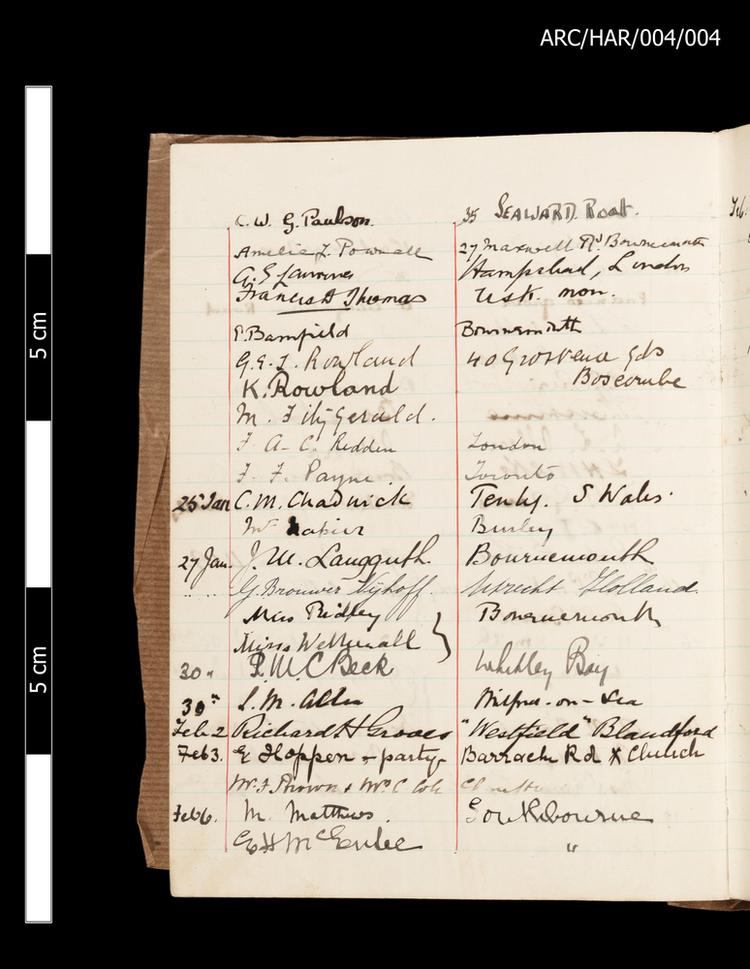 ARC/HAR/004/004
5 cm
5 cm
C. W. G. Paulson. 35 SEAWARD Road.
Amelia J. Pownall 27 Maxwell Rd Bournemouth
Hampstead, London
Francis A Thomas Usk. mon.
P. Bamfield Bournemouth
G.E.J. Rowland 40 Grosvenor gds
K. Rowland Boscombe
M. FitzGerald.
F. A. C. Redden London
F. F. Payne Toronto
25 Jan C. M. Chadwick Tenby. S Wales.
Mr Napier Burley
27 Jan. J. W. Langguth. Bournemouth
G. Brouwer Nijhoff. Utrecht Holland.
Miss Ridley Bournemouth
Miss Wethnall }
30 " P. W. C Beck Whitley Bay
30 " S. M. Allen on - Sea
Feb. 2 Richard H Groves "Westfield" Blandford
Feb 3. E Hoppen + party - Barrack Rd X Church
W. F. Brown + Mr C Cole
Feb 6. M. Matthews. Southbourne
E H McEntee "
Feb.